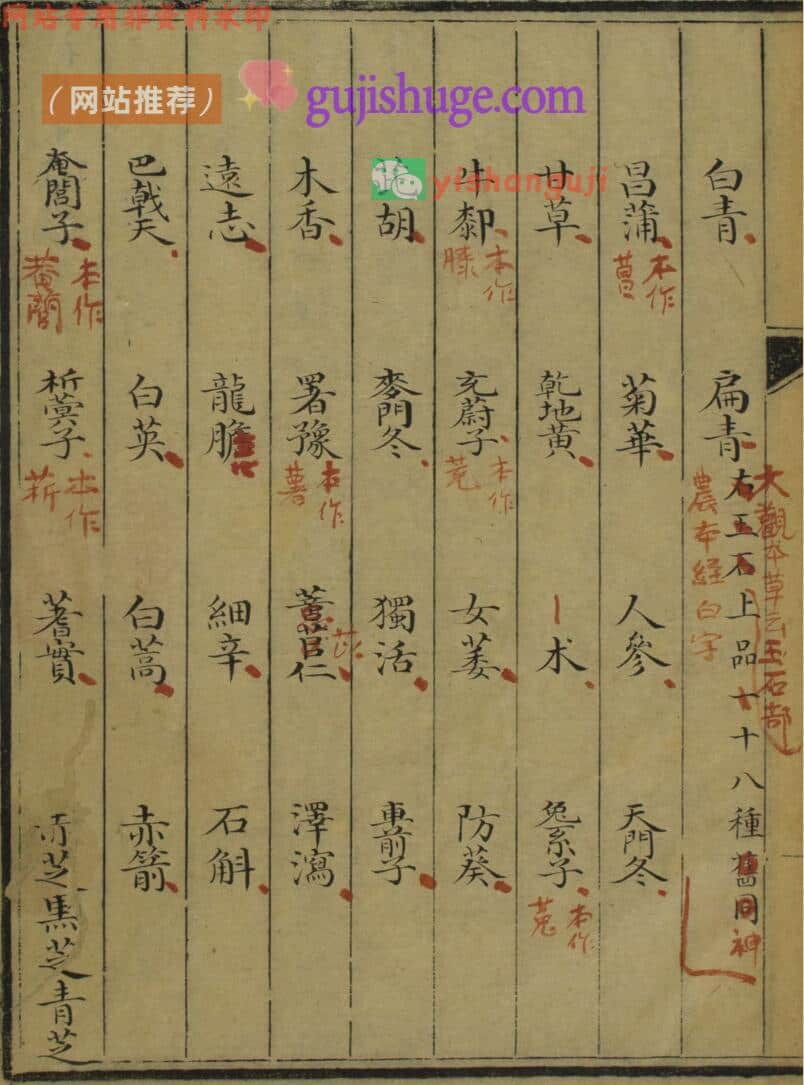 网站专用非资料水印
（网站推荐）
gujishuge.com
yishanguji
白青 扁青 右玉石上品一十八種舊同
大觀本草云玉石部
神
農本経白字
昌蒲 菊華 人參 天門冬
本作
菖
甘草 乾地黃 术 兔系子
本作
菟
牛䣛 充蔚子 女萎 防葵
本作
膝
本作
茺
胡 麥門冬 獨活 車前子
木香 署豫 薏苢仁 澤瀉
本作
薯
苡
遠志 龍膽 細辛 石斛
巴戟天 白英 白蒿 赤箭
奄閭子 析蓂子 蓍實 赤芝黑芝青芝
本作
菴䕡
本作
菥